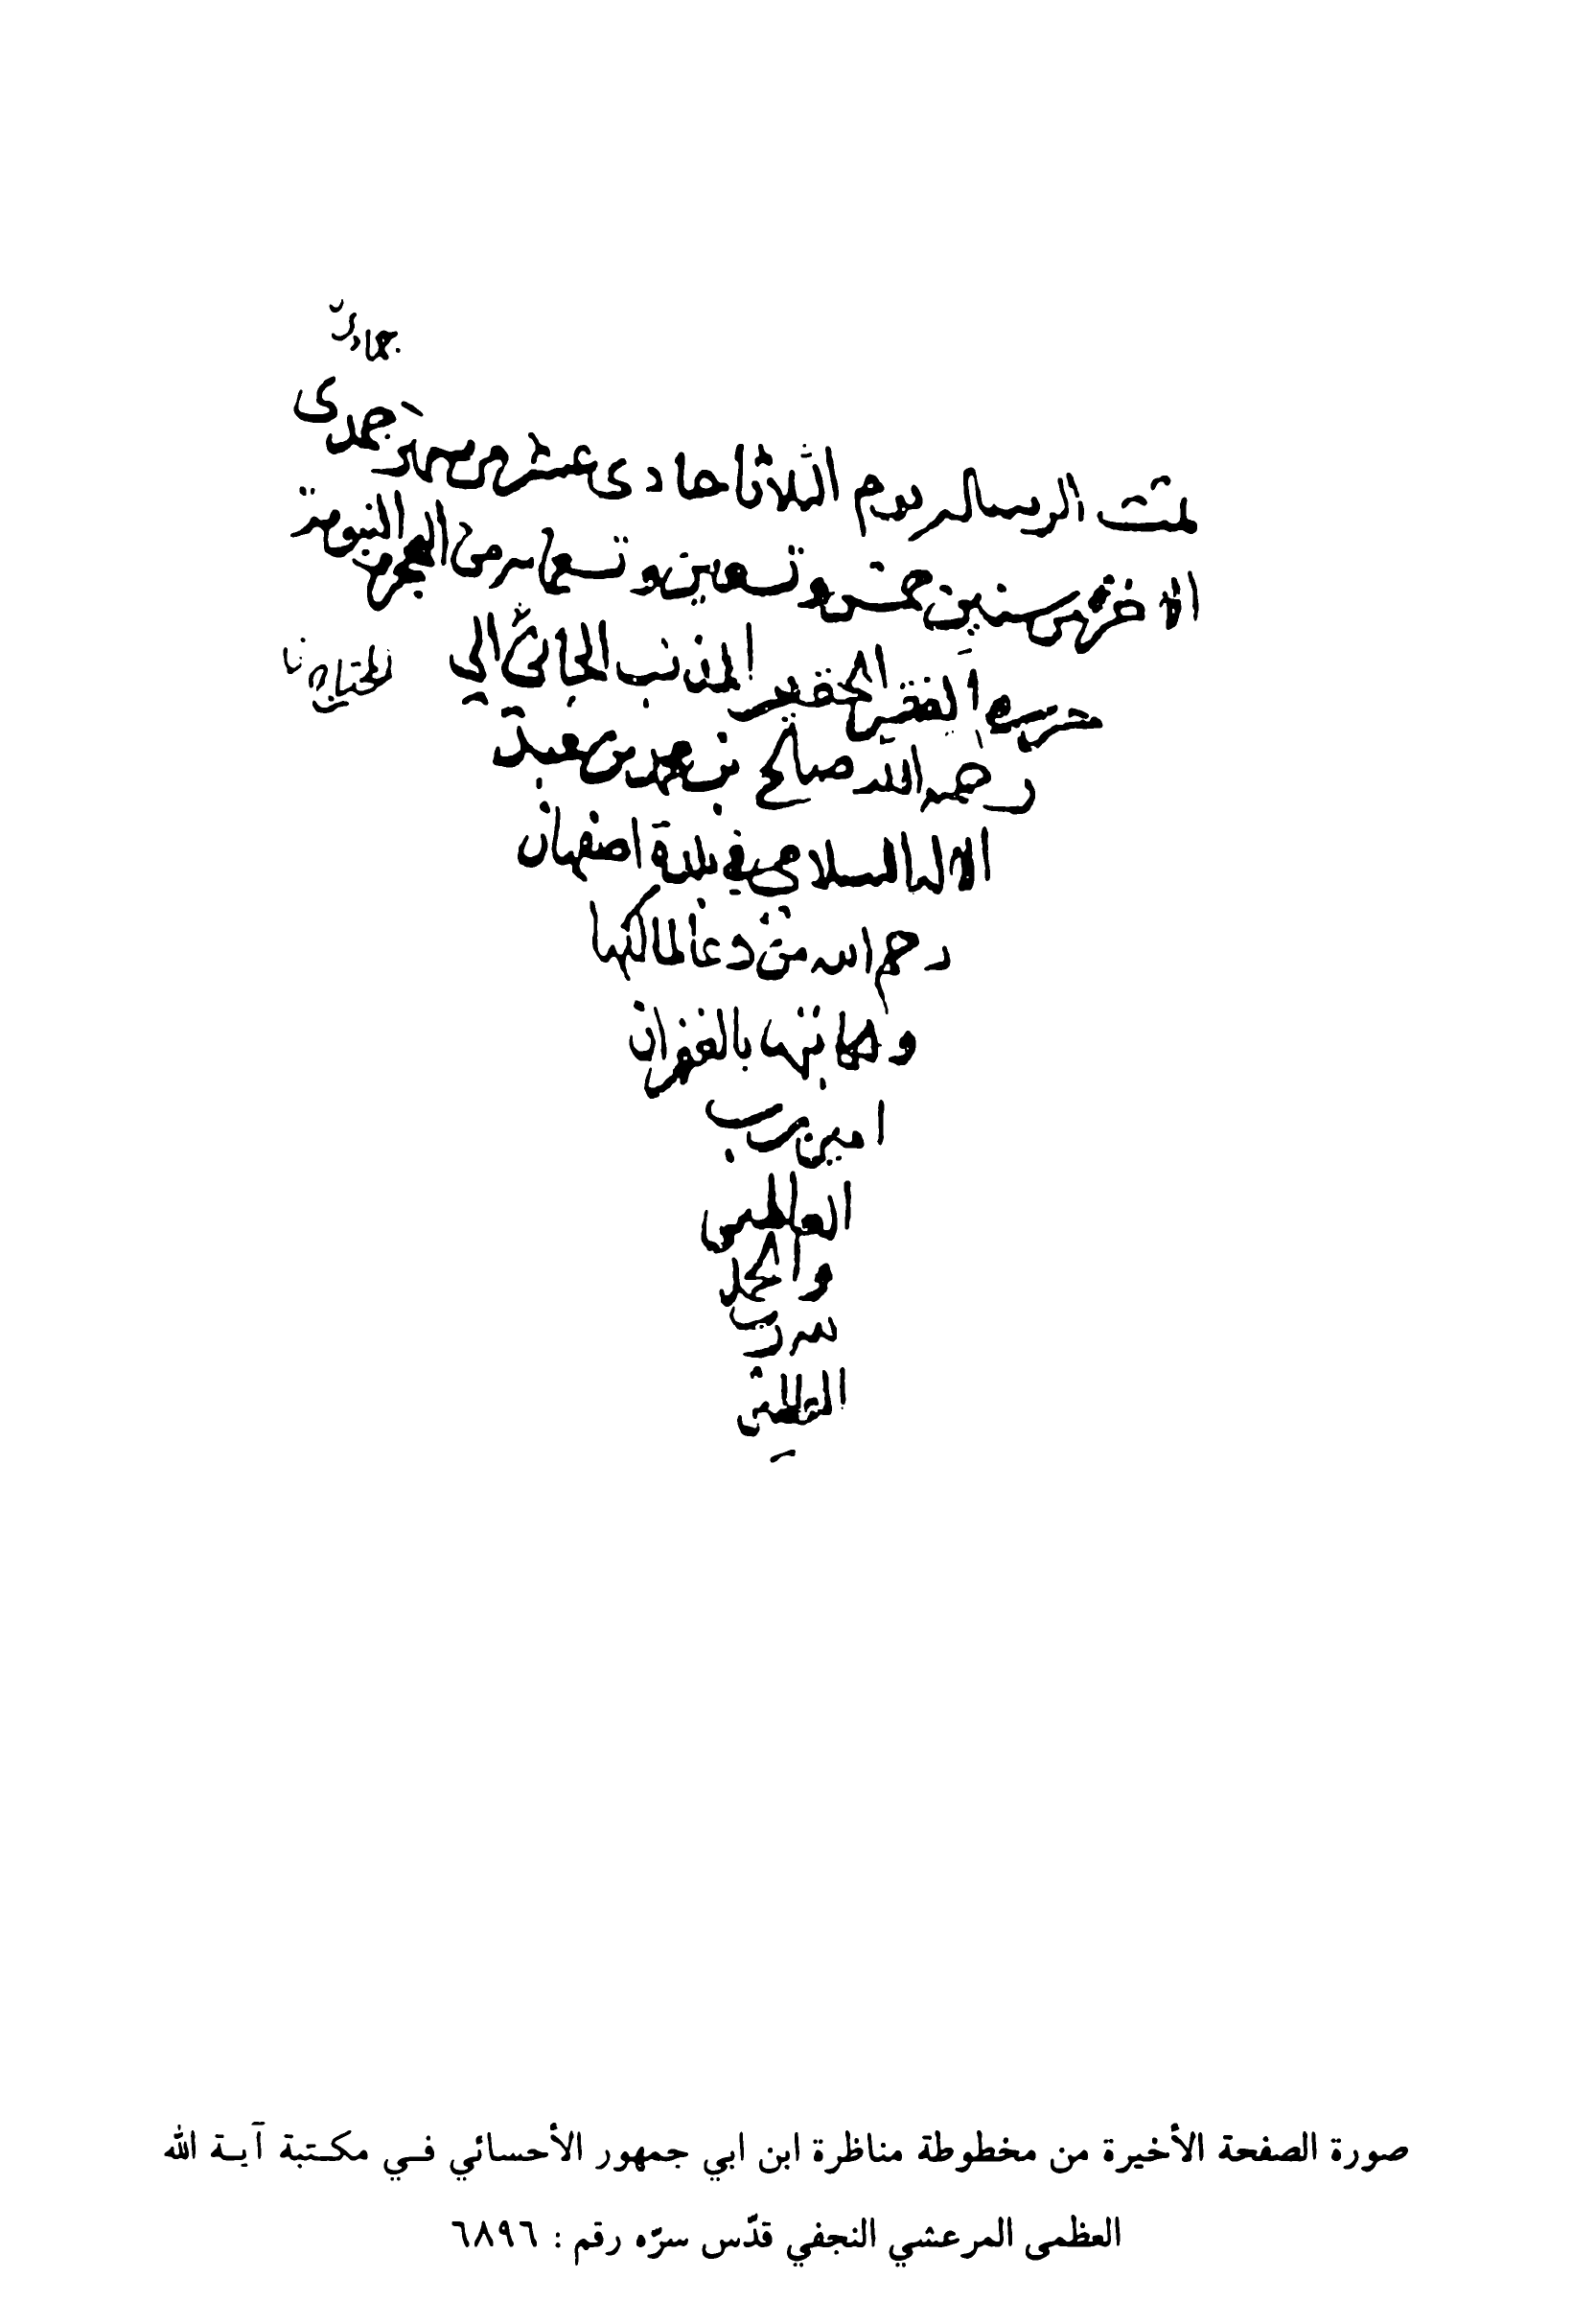 جمادى
تمت الرساله يوم الثلاثا حادى عشر من شهر جمدى
الاخر سنين خمس وتسعين وتسعمايه من الهجره النبويه
حرره الفقير الحقير المذنب الجانى الي
المحتاج
رحمه الله صالح بن محمد بن عبد
الاله السلامي في بلدة اصفهان
رحم الله من دعا لمالكها
وكاتبها بالغفران
امين يرب
العالمين
والحمد
لله رب
العالمين
صورة الصفحة الأخيرة من مخطوطة مناظرة ابن ابي جمهور الأحسائي في مكتبة آية الله
العظمى المرعشي النجفي قدّس سرّه رقم : ٦٨٩٦